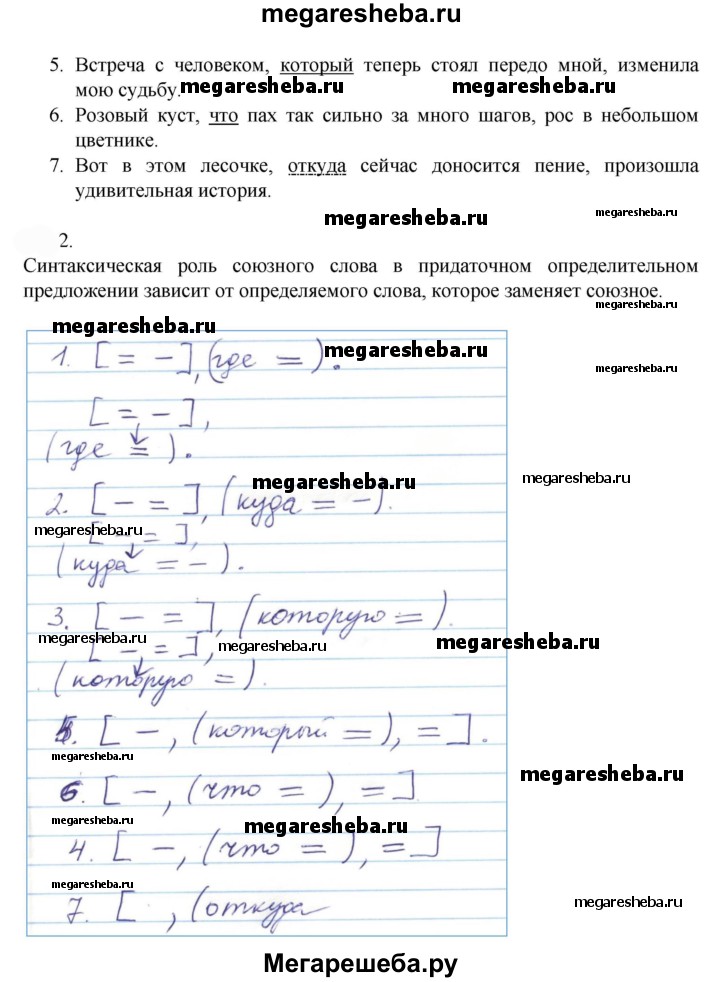 megaresheba.ru
5. Встреча с человеком, который теперь стоял передо мной, изменила
мою судьбу.
megaresheba.ru
megaresheba.ru
6. Розовый куст, что пах так сильно за много шагов, рос в небольшом
цветнике.
7. Вот в этом лесочке, откуда сейчас доносится пение, произошла
удивительная история.
megaresheba.ru
megaresheba.ru
2.
Синтаксическая роль союзного слова в придаточном определительном
предложении зависит от определяемого слова, которое заменяет союзное.
megaresheba.ru
megaresheba.ru
1. [ = – ], (где = ).
megaresheba.ru
megaresheba.ru
[ = – ],
(где = ).
megaresheba.ru
megaresheba.ru
2. [ – = ], (куда = –).
megaresheba.ru
[ – = ],
(куда = – ).
3. [ – = ], (которую = ).
megaresheba.ru
megaresheba.ru
megaresheba.ru
[ – = ],
(которую = ).
5. [ – , (который = ), = ].
megaresheba.ru
megaresheba.ru
6. [ – , (что = ), = ]
megaresheba.ru
megaresheba.ru
4. [ – , (что = ), = ]
megaresheba.ru
7. [ , (откуда
megaresheba.ru
Мегарешеба.ру